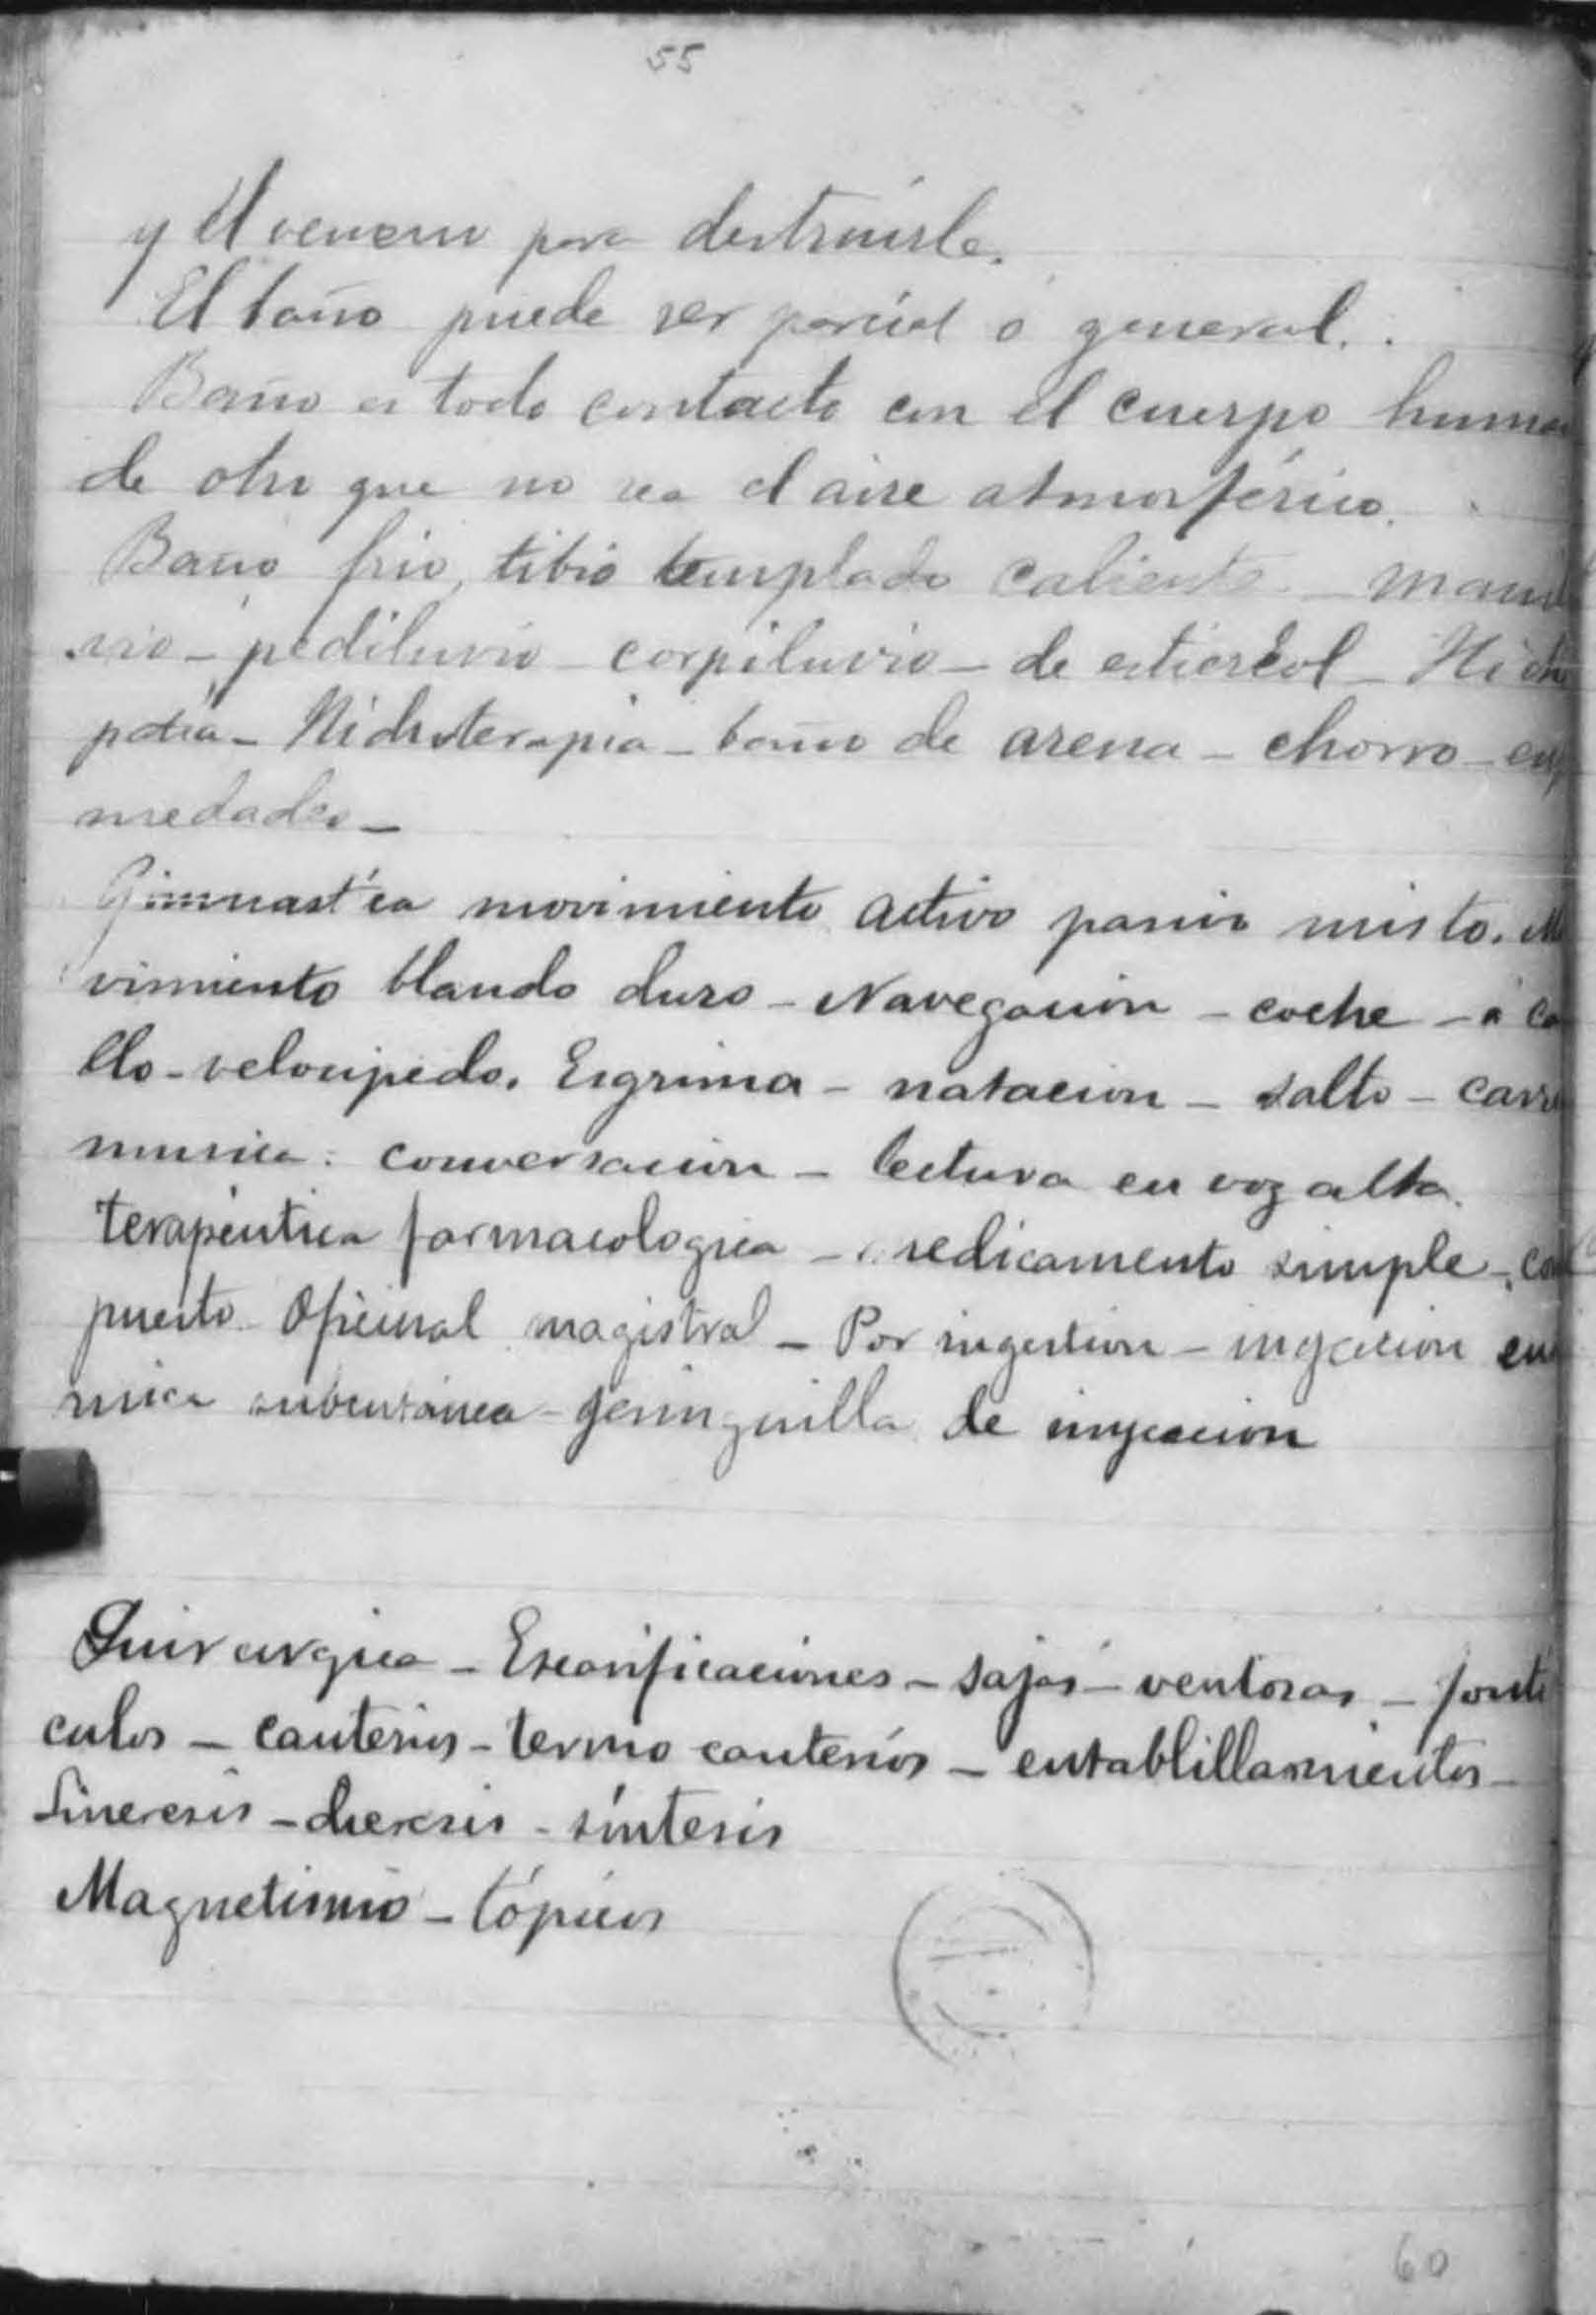 55
y el veneno para destruirle.
El baño puede ser parcial ó general.
Baño es todo contacto con el cuerpo huma
de otro que no sea el aire atmosférico.
Baño frio, tibio templado caliente - mani
vio - pediluvio - corpiluvio - de estiercol - Hidro
patia - Hidroterapia - baño de arena - chorro -
medades -
Gimnastica movimiento activo pasivo misto. Mo
vimiento blando duro - Navegacion - coche - á ca
llo - velocipedo. Esgrima - natacion - salto - carre
musica. conversacion - lectura en voz alta.
terapéutica farmacologica - medicamento simple - com
puesto Oficinal magistral - Por ingestion - inyeccion
mica subcutánea - geringuilla de inyeccion
Quirurgica - Escarificaciones - sajas - ventosas - fonti
culos - cauterios - termo cauterios - entablillamientos -
Sineresis - dieresis - síntesis
Magnetismo - tópicos
60